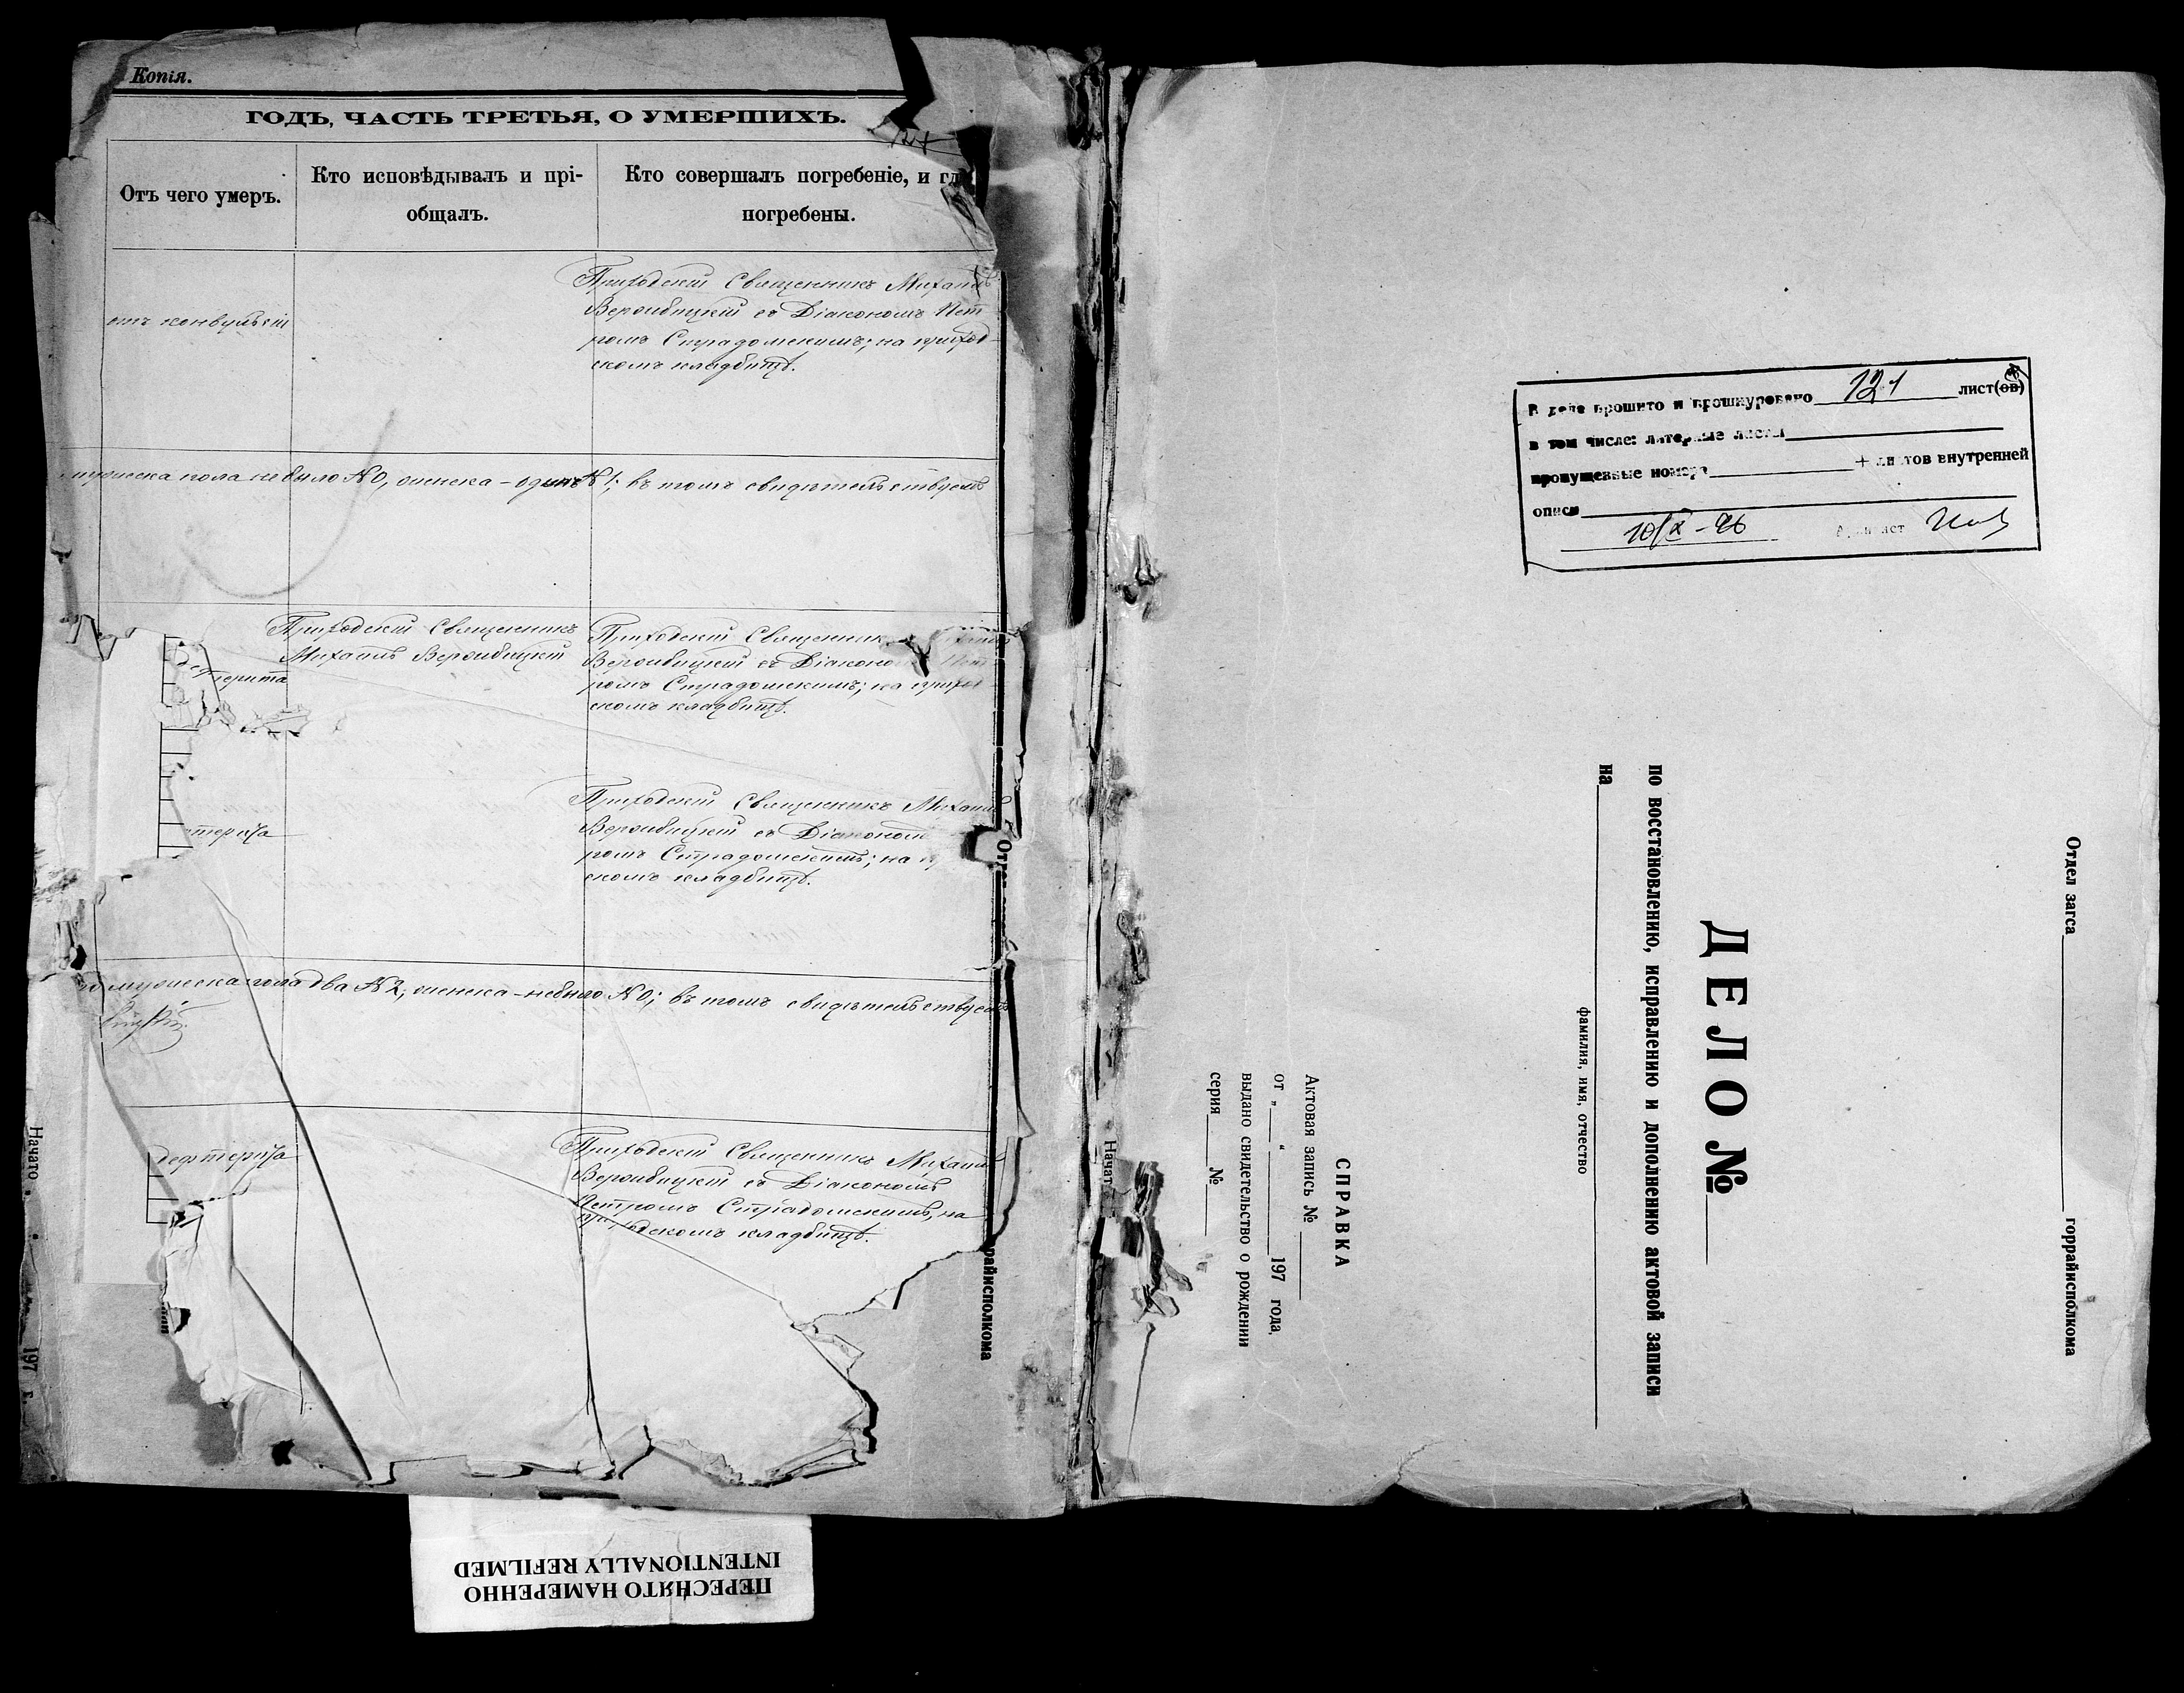 Копія.
ГОДЪ, ЧАСТЬ ТРЕТЬЯ, О УМЕРШИХЪ.
Отъ чего умеръ.
Кто исповѣдывалъ и прі-
общалъ.
Кто совершалъ погребеніе, и гд
погребены.
отъ конвульсіи
Приходскій Священникъ Михаилъ
Вержбицкій съ Діакономъ Пет
ромъ Страдомскимъ; на приход-
скомъ кладбищѣ.
мужеска пола не было №0, женска - одинъ №1; въ томъ свидѣтельствуемъ
терита
Приходскій Священникъ
Михаилъ Вержбицкій
Приходскій Священник
Вержбицкій съ Діаконо Пет
ромъ Страдомскимъ; на приход-
скомъ кладбищѣ.
терита
Приходскій Священникъ Михаилъ
Вержбицкій съ Діакономъ
ромъ Страдомскимъ; на п
скомъ кладбищѣ.
мужеска пола два №2, женска - не было №0; въ томъ свидѣтельствуемъ
дефтерита
Приходскій Священникъ Михаилъ
Вержбицкій съ Діакономъ
Петромъ Страдомскимъ, на
приходскомъ кладбищѣ.
Начато
197 г.
Отдел
райисполкома
ПЕРЕСНЯТО НАМЕРЕННО
INTENTIONALLY REFILMED
В деле прошито и прошнуровано 121 лист(ов)
в том числе: литерные листы
пропущенные номера + листов внутренней
описи
10/X-96
Отдел загса горрайисполкома
ДЕЛО №
по восстановлению, исправлению и дополнению актовой записи
на
фамилия, имя, отчество
СПРАВКА
Актовая запись №
от „ “ 197 года,
выдано свидетельство о рождении
серия №
Начат